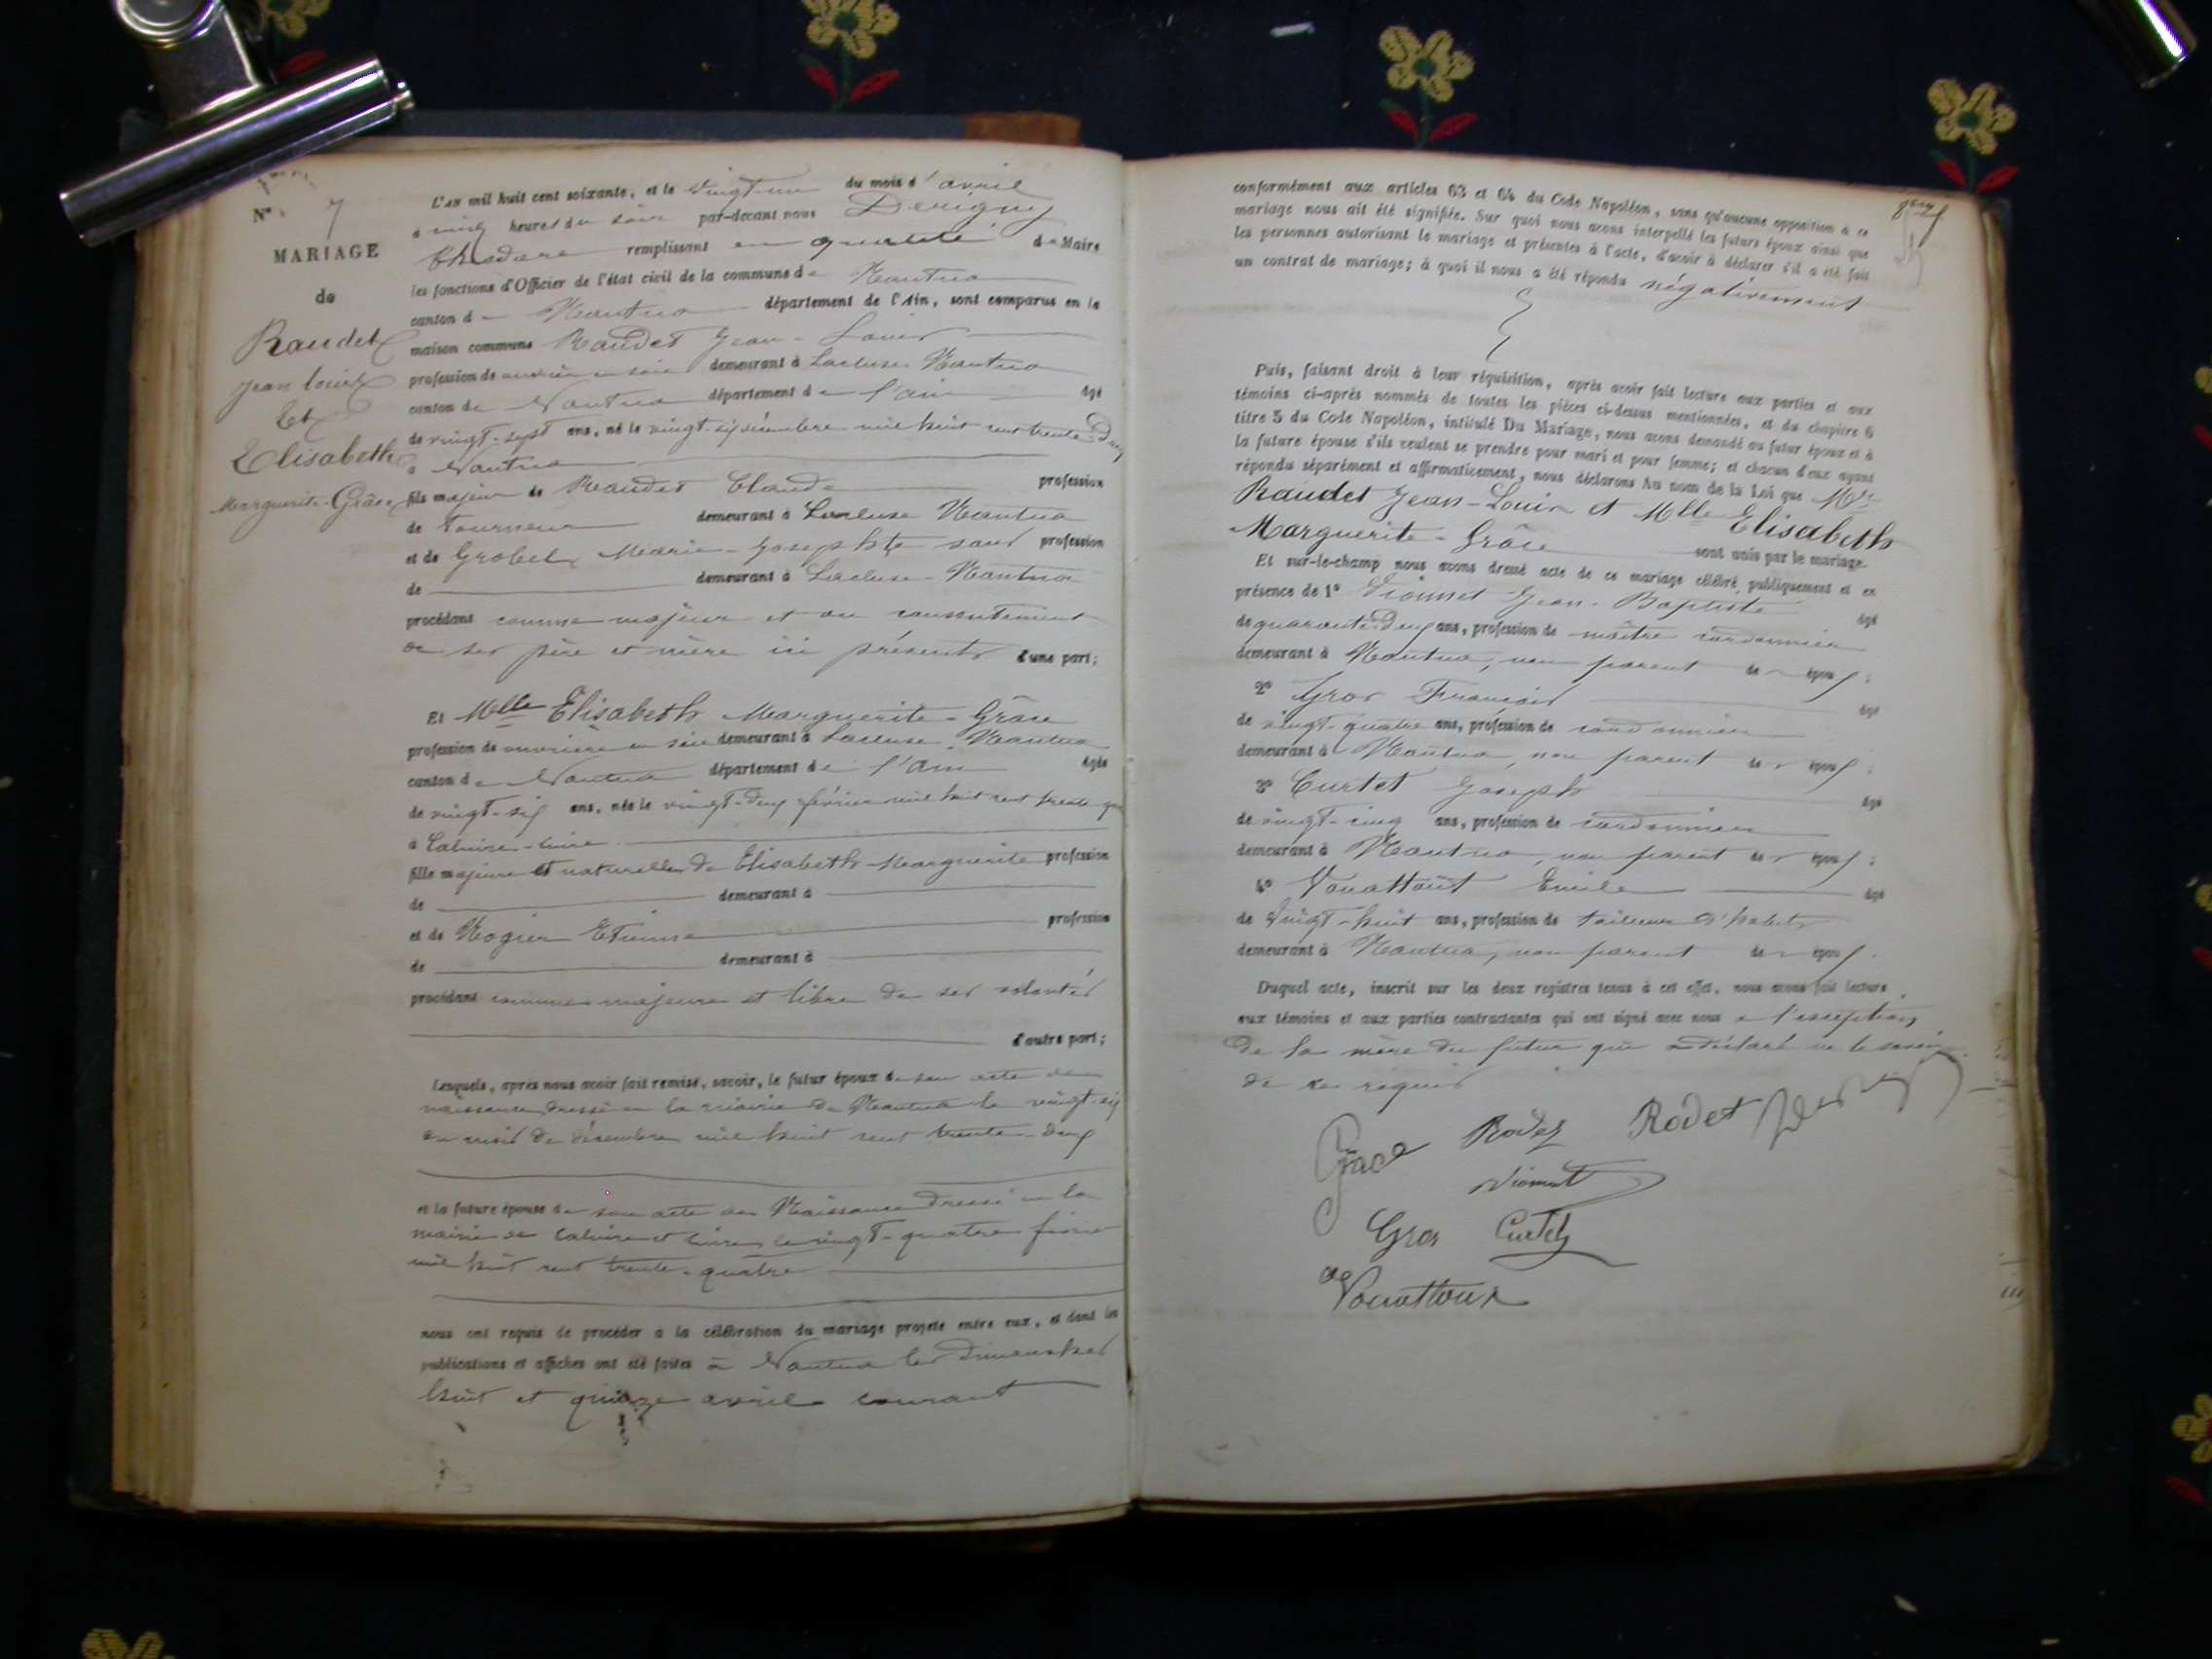 N° 7
MARIAGE
de
Raudet
Jean Louis
Et
Elisabeth
Marguerite-Grâce
L'AN mil huit cent soixante, et le vingt-un du mois d'avril
a cinq heures du soir par-devant nous Derigny
remplissant en qualité de Maire
les fonctions d'Officier de l'état civil de la commune de Nantua
canton de Nantua département de l'Ain, sont comparus en la
maison commune Raudet Jean-Louis
profession de ouvrier en soie demeurant à Lacluse-Nantua
canton de Nantua département de l'ain âgé
de vingt-sept ans, né le vingt-six décembre mil huit cent trente-deux
a Nantua
fils majeur de Raudet Claude profession
de Tourneur demeurant à Lacluse Nantua
et de Grobel Marie-Josephte sans profession
de demeurant à Lacluse-Nantua
procédant comme majeur et au consentement
de ses père et mère ici présents d'une part;
Et Mlle Elisabeth Marguerite-Grâce
profession de ouvrière en soie demeurant à Lacluse-Nantua
canton de Nantua département de l'Ain âgée
de vingt-six ans, née le vingt-deux février mil huit cent trente-quatre
a Caluire-Cuire
fille majeure et naturelle de Elisabeth Marguerite profession
de demeurant à
et de Rogier Etienne profession
de demeurant à
procédant comme majeure et libre de ses volontés
d'autre part;
Lesquels, après nous avoir fait remise, savoir, le futur époux de son acte de
naissance dressé en la mairie de Nantua le vingt-six
du mois de décembre mil huit cent trente-deux
et la future épouse de son acte de Naissance dressé en la
mairie de Caluire et Cuire le vingt-quatre février
mil huit cent trente-quatre
nous ont requis de procéder a la célébration du mariage projeté entre eux, et dont les
publications et affiches ont été faites à Nantua les dimanches
huit et quinze avril courant
conformément aux articles 63 et 64 du Code Napoléon, sans qu'aucune opposition a ce
mariage nous ait été signifiée. Sur quoi nous avons interpellé les futurs époux ainsi que
les personnes autorisant le mariage et présentes à l'acte, d'avoir à déclarer s'il a été fait
un contrat de mariage; à quoi il nous a été répondu négativement
Puis, faisant droit à leur réquisition, après avoir fait lecture aux parties et aux
témoins ci-après nommés de toutes les pièces ci-dessus mentionnées, et du chapitre 6
titre 5 du Code Napoléon, intitulé Du Mariage, nous avons demandé au futur époux et à
la future épouse s'ils veulent se prendre pour mari et pour femme; et chacun d'eux ayant
répondu séparément et affirmativement, nous déclarons Au nom de la Loi que Mr
Raudet Jean-Louis et Mlle Elisabeth
Marguerite-Grâce sont unis par le mariage.
Et sur-le-champ nous avons dressé acte de ce mariage célébré publiquement et en
présence de 1° Vionnet Jean-Baptiste âgé
de quarante-deux ans, profession de maître cordonnier
demeurant à Nantua, non parent des époux;
2° Gros François âgé
de vingt-quatre ans, profession de cordonnier
demeurant à Nantua, non parent des époux;
3° Curtet Joseph âgé
de vingt-cinq ans, profession de cordonnier
demeurant à Nantua, non parent des époux;
4° Vouattoux Emile âgé
de vingt-huit ans, profession de tailleur d'habits
demeurant à Nantua, non parent des époux.
Duquel acte, inscrit sur les deux registres tenus à cet effet, nous avons fait lecture
aux témoins et aux parties contractantes qui ont signé avec nous à l'exception
de la mère du futur qui a déclaré ne le savoir
de ce requis
Grace Rodet Rodet
Vionnet
Gros Curtet
Vouattoux